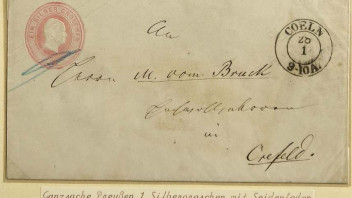 COELN
28
1
9-10A.
An
Herrn M. vom Bruck
in
Crefeld.
Ganzsache Preußen 1 Silbergroschen mit Seidenfaden